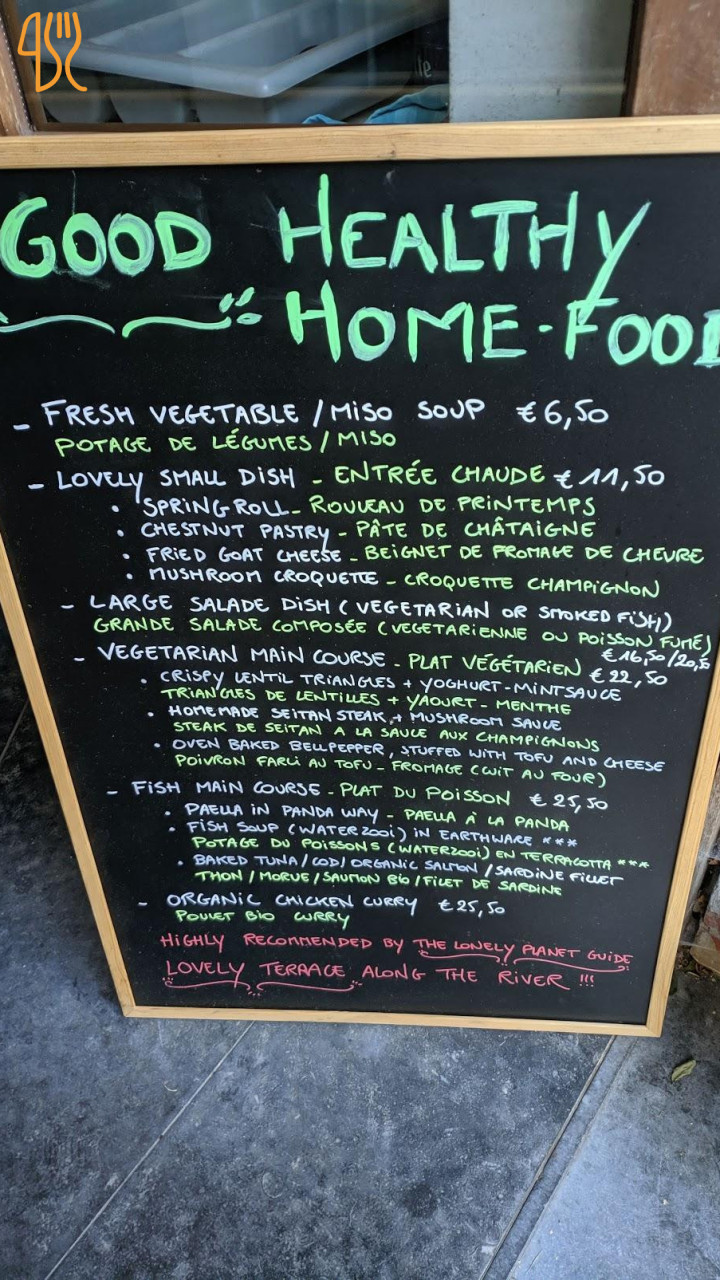 GOOD HEALTHY
HOME-FOOD
- FRESH VEGETABLE / MISO SOUP € 6,50
POTAGE DE LÉGUMES / MISO
- LOVELY SMALL DISH - ENTRÉE CHAUDE € 11,50
• SPRINGROLL - ROULEAU DE PRINTEMPS
• CHESTNUT PASTRY - PÂTE DE CHÂTAIGNE
• FRIED GOAT CHEESE - BEIGNET DE FROMAGE DE CHEVRE
• MUSHROOM CROQUETTE - CROQUETTE CHAMPIGNON
- LARGE SALADE DISH (VEGETARIAN OR SMOKED FISH)
GRANDE SALADE COMPOSÉE (VEGETARIENNE OU POISSON FUMÉ)
€ 16,50 / 20,50
- VEGETARIAN MAIN COURSE - PLAT VÉGÉTARIEN € 22,50
• CRISPY LENTIL TRIANGLES + YOGHURT-MINTSAUCE
TRIANGLES DE LENTILLES + YAOURT - MENTHE
• HOMEMADE SEITAN STEAK + MUSHROOM SAUCE
STEAK DE SEITAN A LA SAUCE AUX CHAMPIGNONS
• OVEN BAKED BELLPEPPER, STUFFED WITH TOFU AND CHEESE
POIVRON FARCI AU TOFU - FROMAGE (CUIT AU FOUR)
- FISH MAIN COURSE - PLAT DU POISSON € 25,50
• PAELLA IN PANDA WAY - PAELLA À LA PANDA
• FISH SOUP (WATERZOOI) IN EARTHWARE ***
POTAGE DU POISSONS (WATERZOOI) EN TERRACOTTA ***
• BAKED TUNA / COD / ORGANIC SALMON / SARDINE FILLET
THON / MORUE / SAUMON BIO / FILET DE SARDINE
- ORGANIC CHICKEN CURRY € 25,50
POULET BIO CURRY
HIGHLY RECOMMENDED BY THE LONELY PLANET GUIDE
LOVELY TERRACE ALONG THE RIVER !!!